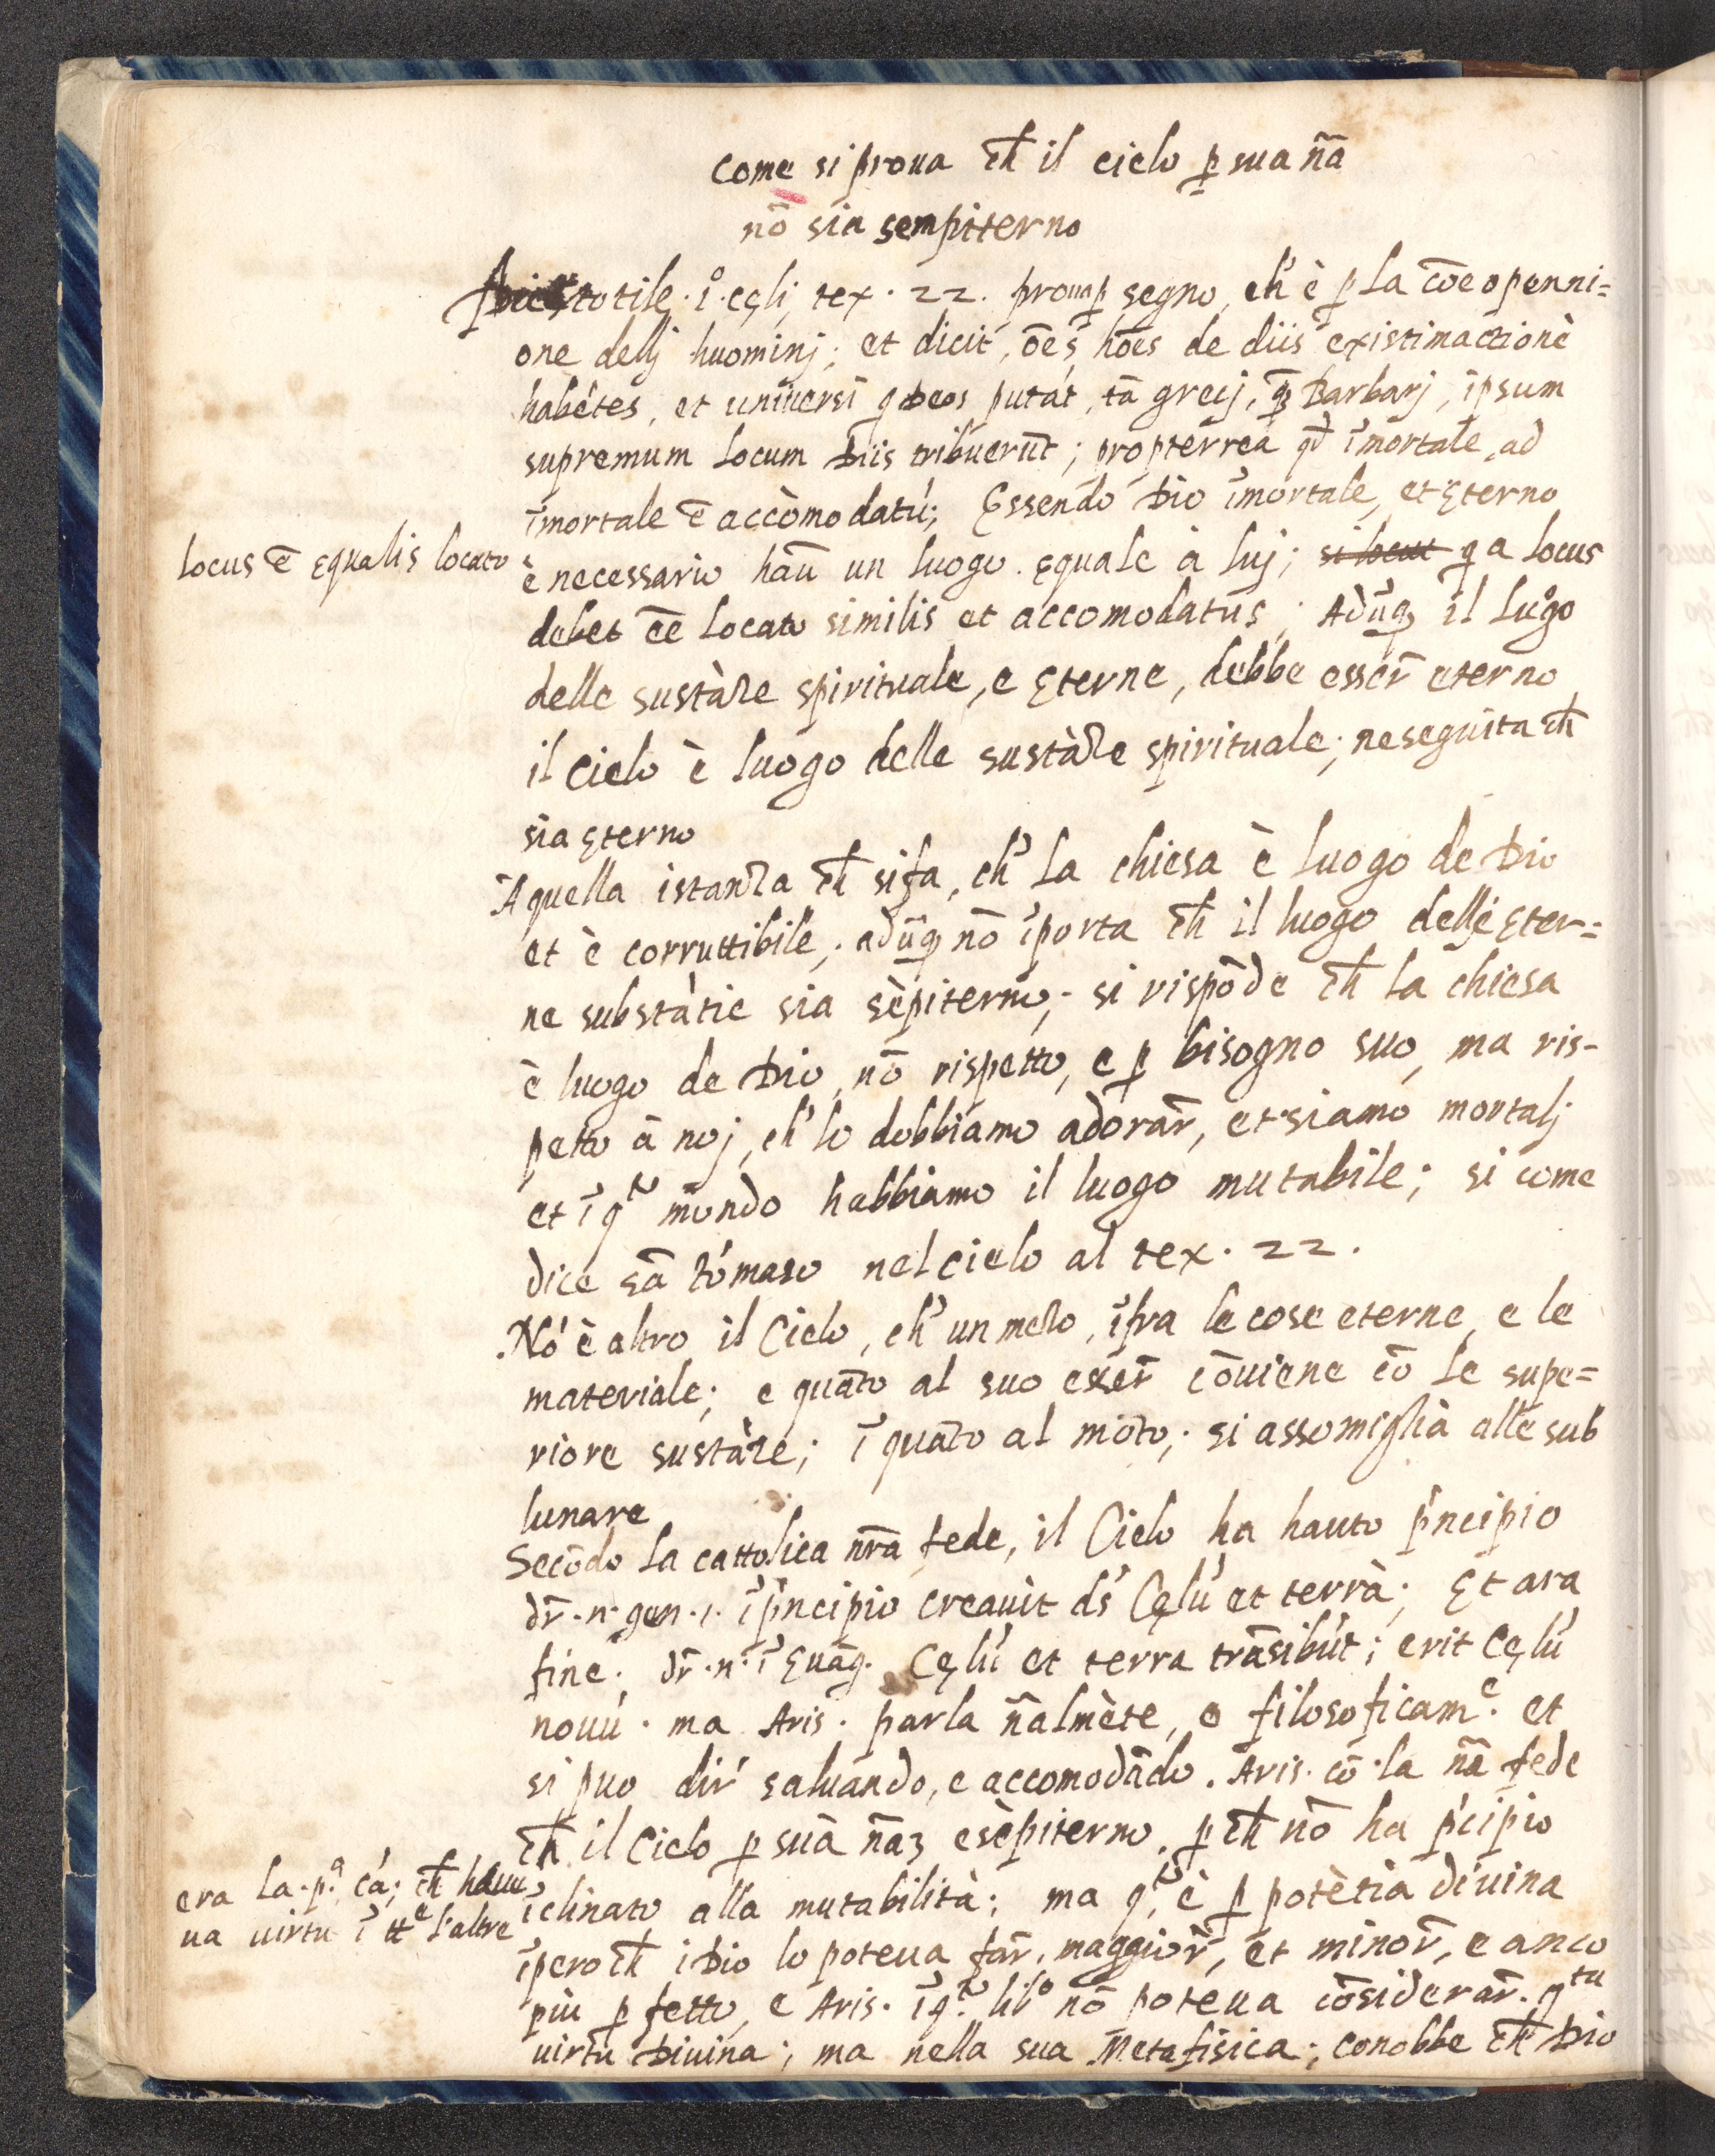 come si proua ch̄ il cielo p̱ sua nā̄
nō sia sempiterno
Aristotile · i.° cęli, tex · 22 · proua p̱ segno, ch' è p̱ la cōe openni=
one dellj huominj; et dicit, ōes hōes de diis existimationē
habētes, et uniuersi q deos putāt, tā grecj, q̄ Barbarj, ipsum
supremum locum Diis tribuerūt; propterrea qd īmortale, ad
īmortale ē accōmodatū; Essendo Dio īmortale, et Eterno
locus ē Equalis locato
è necessario hau̅ un luogo Equale à luj; si locus qa locus
debet ēē locato similis et accomodatus; Adūq il luogo
delle sustāze spirituale, e Eterne, debbe esser̄ eterno
il cielo è luogo delle sustāze spirituale; ne seguita ch̄
sia Eterno
A quella istanza ch̄ si fa, ch' la chiesa è luogo de Dio
et è corruttibile; adūq nō īporta ch̄ il luogo delle Eter=
ne substātie sia sēpiterno; si rispōde ch̄ la chiesa
è luogo de Dio, nō rispetto, e p̱ bisogno suo, ma ris-
petto à noj, ch' lo dobbiamo adorar̄, et siamo mortalj
et ī q.to mondo habbiamo il luogo mutabile; si come
dice sā tomaso nel cielo al tex · 22 ·
Nō è altro il Cielo, ch' un mezo, īfra le cose eterne, e le
materiale; e quāto al suo esser̄ cōuiene cō le supe=
riore sustāze; ī quāto al moto; si assomiglia alle sub
lunare
Secōdo la cattolica nr̄a fede, il Cielo ha hauto p'ncipio
dr̄ · n · gen · 1 · ī p'ncipio creauit ds̄ Cęlū et terrā; Et ara
fine · dr̄ · n · ī Euāg · Cęlū et terra trāsibūt; erit Cęlū
nouū · ma Aris · parla nālmēte, e filosoficam.e et
si puo dir' saluando, e accomodādo · Aris · cō la nr̄a fede
ch̄ il Cielo p̱ sua nāz e sēpiterno, p̱ ch̄ nō ha p'cipio
era la · p.a cā; ch̄ haue
īclinato alla mutabilità; ma q.to è p̱ potētia diuina
ua uirtu ī tt.e l'altre
īpero ch̄ i Dio lo poteua far̄, maggior̄, et minor̄, e anco
piu p̱fetto, e Aris · ī q.to lib.o nō poteua cōsiderar̄ · q.ta
uirtu Diuina; ma nella sua Metafisica; conobbe ch̄ Dio